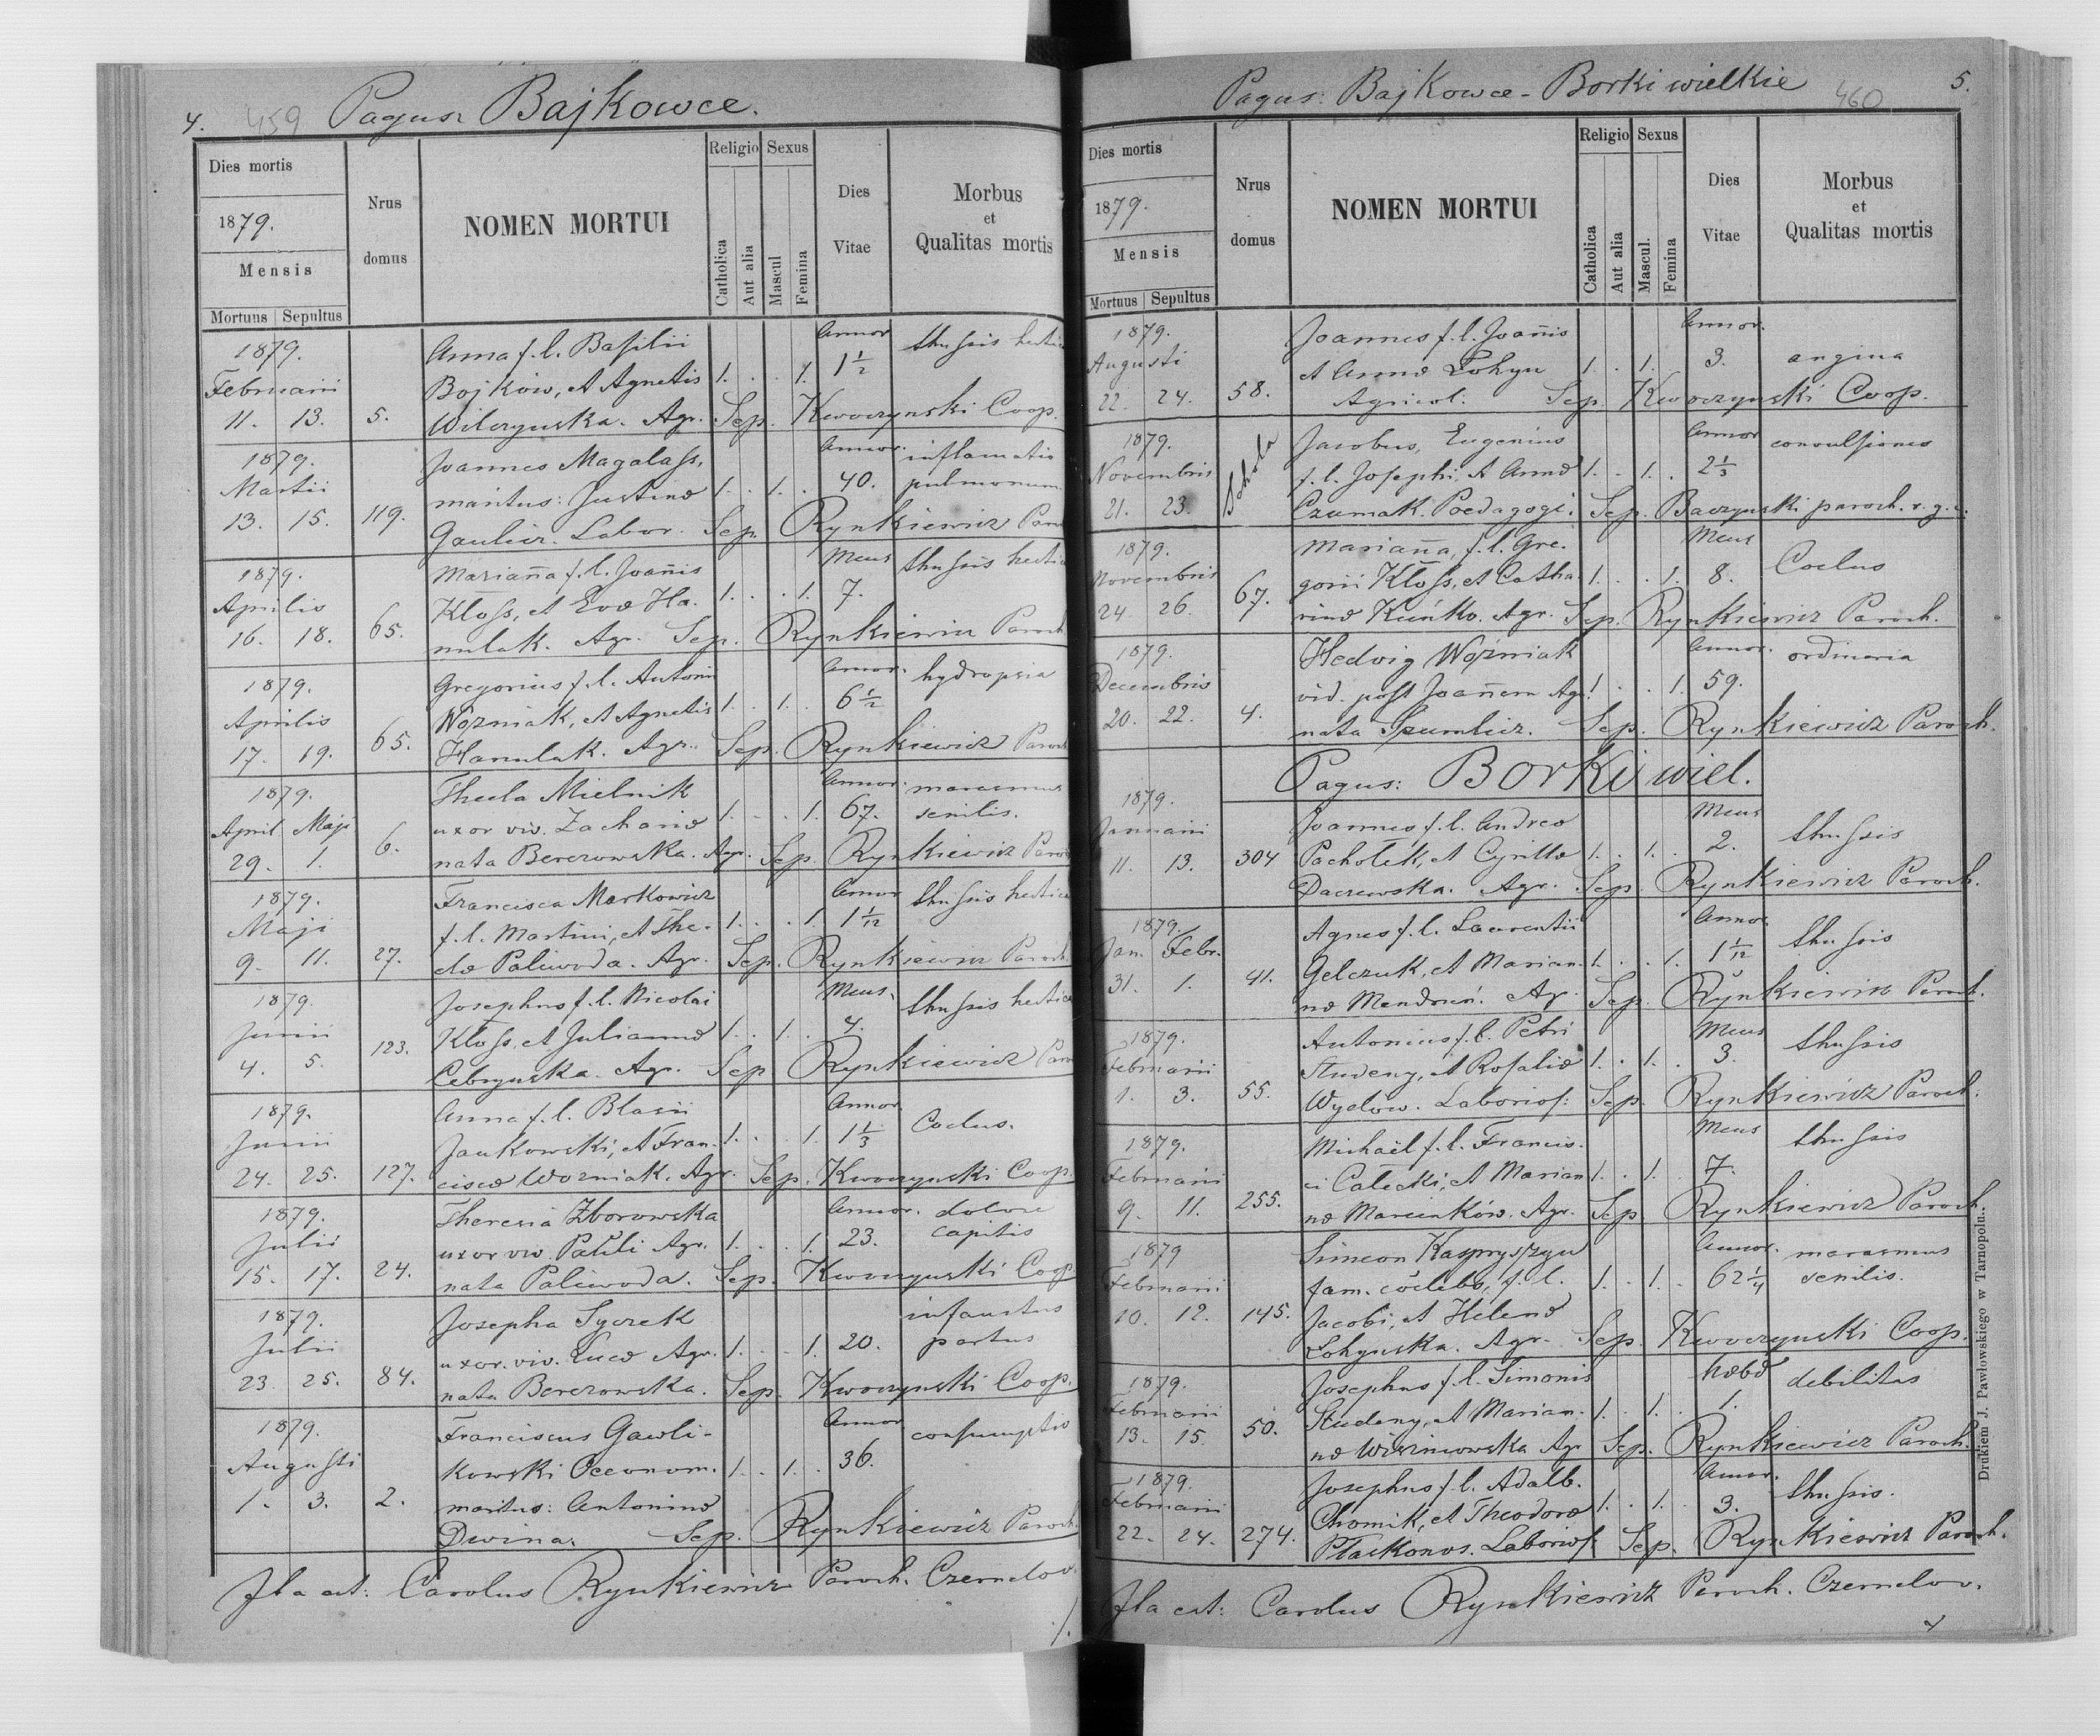 4. 459 Pagus: Bajkowce.
Dies mortis
1879.
Mensis
Mortuus Sepultus
Nrus domus
NOMEN MORTUI
Religio Sexus
Catholica Aut alia Mascul Femina
Dies Vitae
Morbus et Qualitas mortis
1879. Anna f. l. Basilii Annor.
Februarii Bojków, et Agnetis 1. . . 1. 1 1/2
11. 13. 5. Wilczynska. Agr. Sep. Kwoczynski Coop.
1879. Joannes Magalass, Annor. inflamatio
Martii maritus: Justinae 1. . 1. . 40. pulmonum
13. 15. 119. Gaulicz. Labor. Sep. Rynkiewicz
1879. Marianna f. l. Joannis Mens.
Aprilis Kloss, et Evae Ha- 1. . . 1. 7.
16. 18. 65. nulak. Agr. Sep. Rynkiewicz Paroch
1879. Gregorius f. l. Antonii Annor. hydropsia
Aprilis Wozniak, et Agnetis 1. . 1. . 6 1/2
17. 19. 65. Hanulak. Agr. Sep. Rynkiewicz Paroch
1879. Thecla Mielnik Annor. marasmus
April Maji uxor viv. Zachariae 1. . . 1. 67. senilis.
29. 1. 6. nata Berezowska. Agr. Sep. Rynkiewicz
1879. Francisca Markowicz Annor.
Maji f. l. Martini, et The- 1. . . 1. 1 1/12
9. 11. 27. clae Paliwoda. Agr. Sep. Rynkiewicz Paroch
1879. Josephus f. l. Nicolai Mens.
Junii Kloss, et Juliannae 1. . 1. . 4.
4. 5. 123. Cebryńska. Agr. Sep. Rynkiewicz
1879. Anna f. l. Blasii Annor.
Junii Jankowski, et Fran- 1. . 1. 1 1/3
24. 25. 127. ciscae Wozniak. Agr. Sep. Kwoczynski Coop.
1879. Theresia Zborowska Annor. dolore
Julii uxor viv. Pauli Agr. 1. . . 1. 23. capitis
15. 17. 24. nata Paliwoda. Sep. Kwoczynski Coop.
1879. Josepha Syczek infaustus
Julii uxor. viv. Lucae Agr. 1. . . 1. 20. partus
23. 25. 84. nata Berezowska. Sep. Kwoczynski Coop.
1879. Franciscus Gawli- Annor. consumptio
Augusti kowski Oeconom. 1. . 1. . 36.
1. 3. 2. maritus: Antoninae
Dwina. Sep. Rynkiewicz Paroch.
Ita est: Carolus Rynkiewicz Paroch. Czernelov.
Pagus: Bajkowce - Borki wielkie 460 5.
Dies mortis
1879.
Mensis
Mortuus Sepultus
Nrus domus
NOMEN MORTUI
Religio Sexus
Catholica Aut alia Mascul. Femina
Dies Vitae
Morbus et Qualitas mortis
1879. Joannes f. l. Joannis Annor.
Augusti et Annae Lohyn 1. . 1. 3. angina
22. 24. 58. Agricol. Sep. Kwoczynski Coop.
1879. Jacobus, Eugenius Annor convulsiones
Novembris Schola f. l. Josephi, et Annae 1. . 1. . 2 1/3
21. 23. Czumak. Poedagogi. Sep. Baczynski paroch. r. g. c.
1879. Marianna, f. l. Gre- Mens
Novembris gorii Kloss, et Catha- 1. . . 1. 8.
24. 26. 67. rinae Kuńko. Agr. Sep. Rynkiewicz Paroch.
1879. Hedvig Wozniak Annor. ordinaria
Decembris vid. post Joannem Agr. 1. . . 1. 59.
20. 22. 4. nata Szumlicz. Sep. Rynkiewicz Paroch.
Pagus: Borki wiel.
1879. Joannes f. l. Andreae Mens
Januarii Pachotek, et Cyrillae 1. . 1. . 2. thussis
11. 13. 304 Daczewska. Agr. Sep. Rynkiewicz Paroch.
1879. Agnes f. l. Laurentii Annor.
Jan. Febr. Gelczuk, et Marian- 1. . . 1. 1 1/12 thussis
31. 1. 41. nae Agr. Sep. Rynkiewicz Paroch.
1879. Antonius f. l. Petri Mens
Februarii Studeny, et Rosaliae 1. . 1. . 3. thussis
1. 3. 55. Wydow. Laborios: Sep. Rynkiewicz Paroch.
1879. Michaël f. l. Francis- Mens thussis
Februarii ci Calecki, et Marian- 1. . 1. 7.
9. 11. 255. nae Marcinków. Agr. Sep. Rynkiewicz Paroch.
1879 Simeon Kaspryszyn Annor. marasmus
Februarii fam. coelebs, f. l. 1. . 1. . 62 1/4 senilis.
10. 12. 145. Jacobi, et Helenae
Lohynska. Agr. Sep. Kwoczynski Coop.
1879. Josephus f. l. Simonis debilitas
Februarii Studeny, et Marian- 1. . 1. 1.
13. 15. 50. nae Wiszniewska Agr Sep. Rynkiewicz Paroch.
1879. Josephus f. l. Adalb. Annor.
Februarii Chomik, et Theodorae 1. . 1. . 3. thussis.
22. 24. 274. Ptaskonos. Laborios. Sep. Rynkiewicz Paroch.
Ita est: Carolus Rynkiewicz Paroch. Czernelov.
Drukiem J. Pawłowskiego w Tarnopolu.